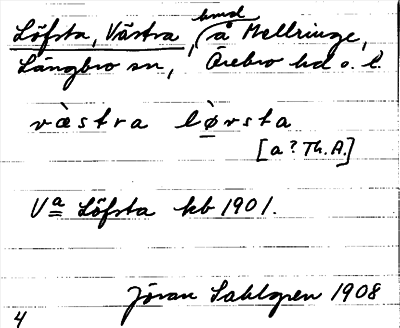 hmd
Löfsta, Västra, å Mellringe,
Längbro sn, Örebro hd o. l.
västra lørsta
[a? Th.A.]
Va Löfsta kb 1901.
Jöran Sahlgren 1908
4